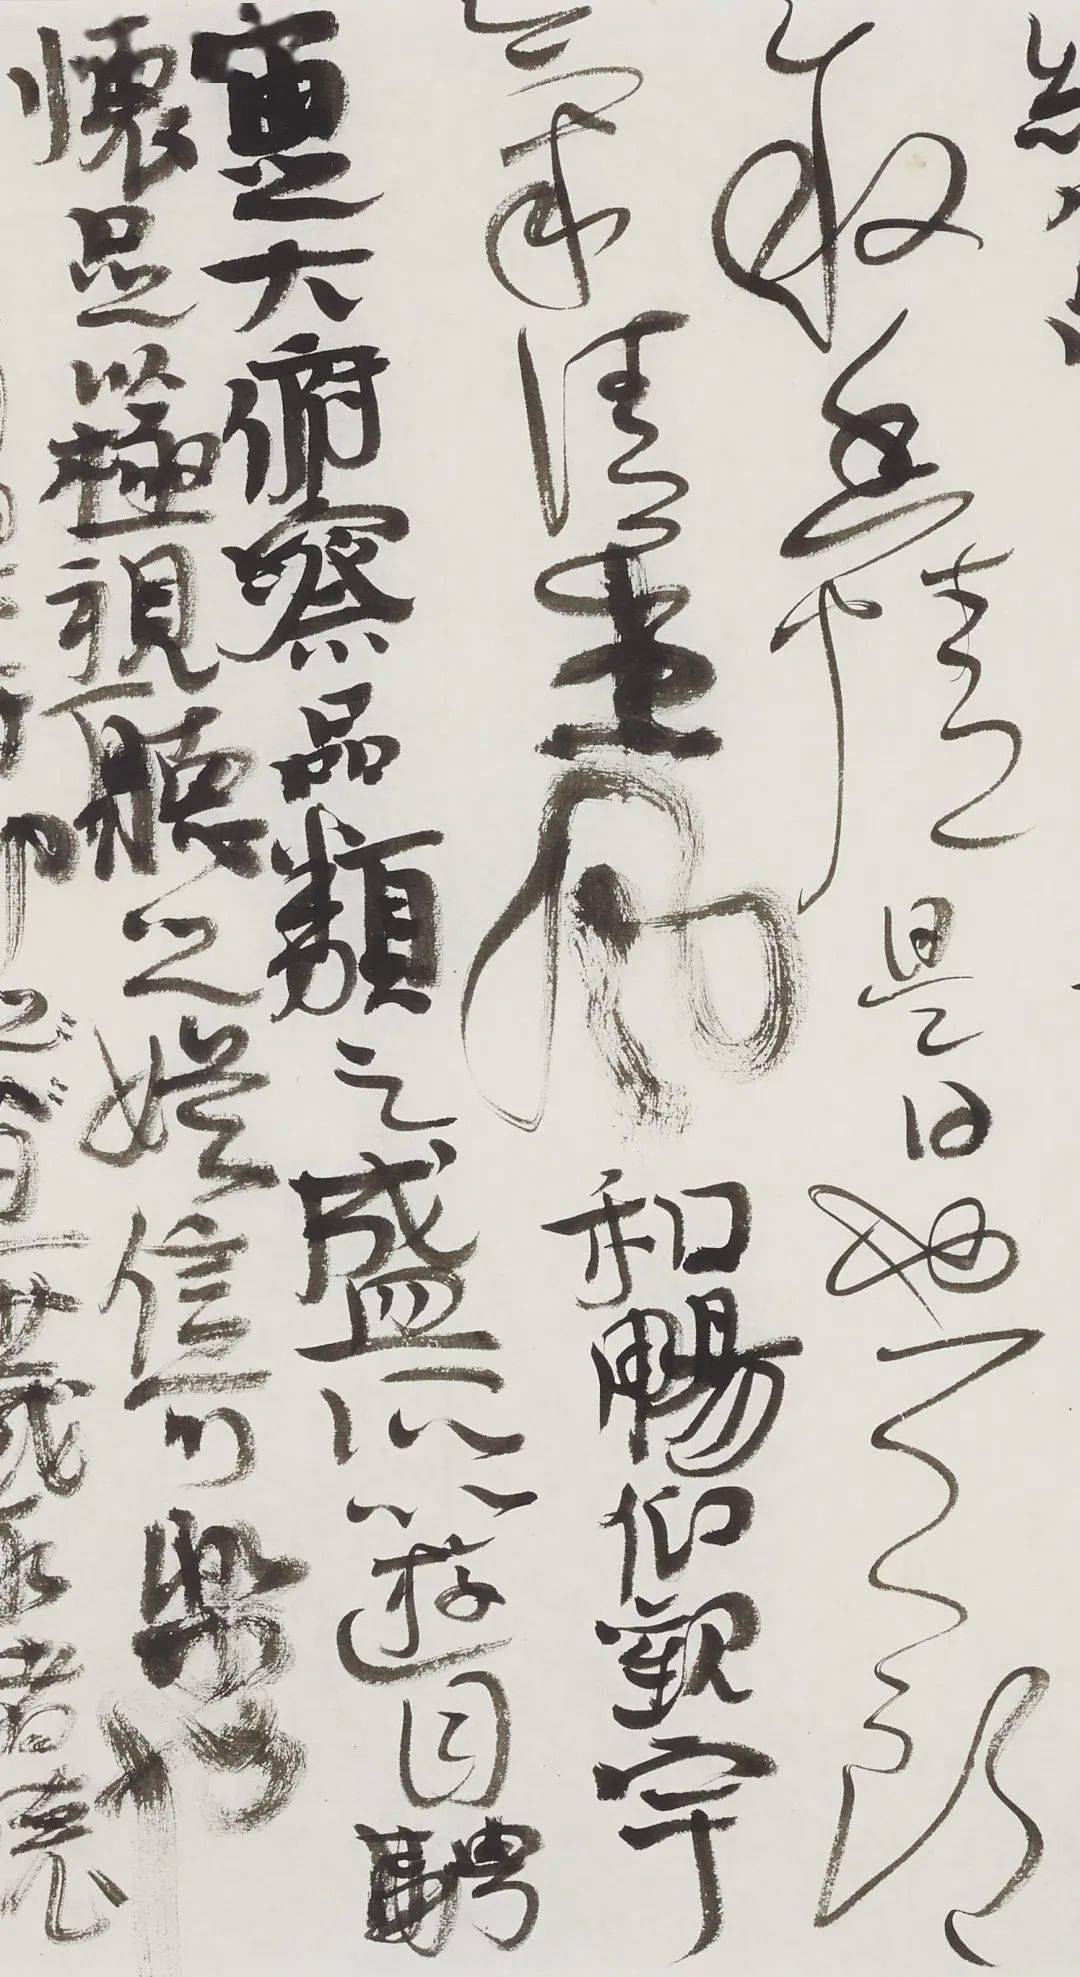 敘幽情是日也天朗
氣清惠風和暢仰觀宇
宙之大俯察品類之盛所以遊目騁
懷足以極視聽之娛信可樂也